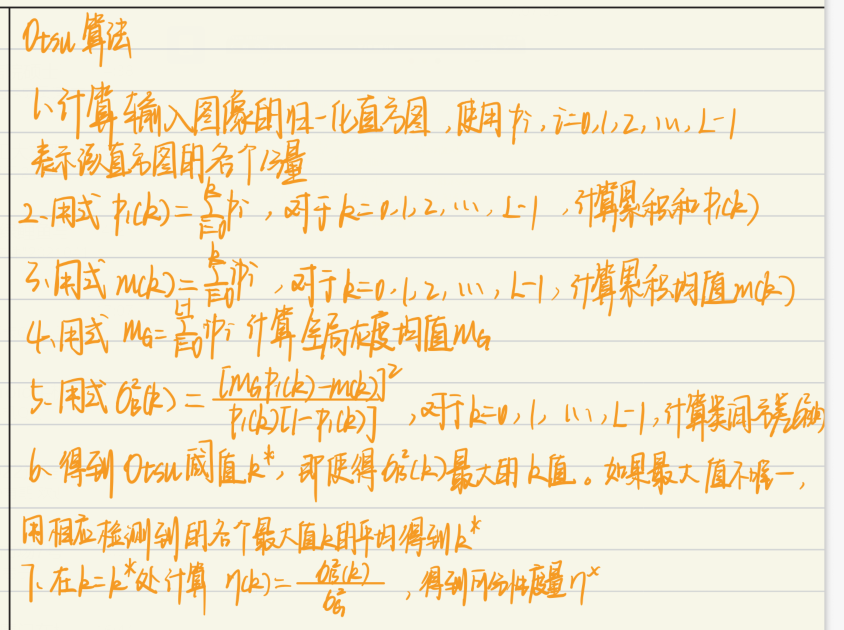 Otsu 算法
1. 计算输入图像的归一化直方图，使用 pᵢ, i=0,1,2,…,L-1
表示该直方图的各个分量
2. 用式 p₁(k)=∑_{i=0}^{k} pᵢ，对于 k=0,1,2,…,L-1，计算累积和 p₁(k)
3. 用式 m(k)=∑_{i=0}^{k} ipᵢ，对于 k=0,1,2,…,L-1，计算累积均值 m(k)
4. 用式 m_G=∑_{i=0}^{L-1} ipᵢ 计算全局灰度均值 m_G
5. 用式 σ_B²(k)=[m_G p₁(k)-m(k)]²/p₁(k)[1-p₁(k)]，对于 k=0,1,…,L-1，计算类间方差
6. 得到 Otsu 阈值 k*，即使得 σ_B²(k) 最大的 k 值。如果最大值不唯一，
用相应检测到的各个最大值 k 的平均得到 k*
7. 在 k=k* 处计算 η(k)=σ_B²(k)/σ_G²，得到可分性度量 η*